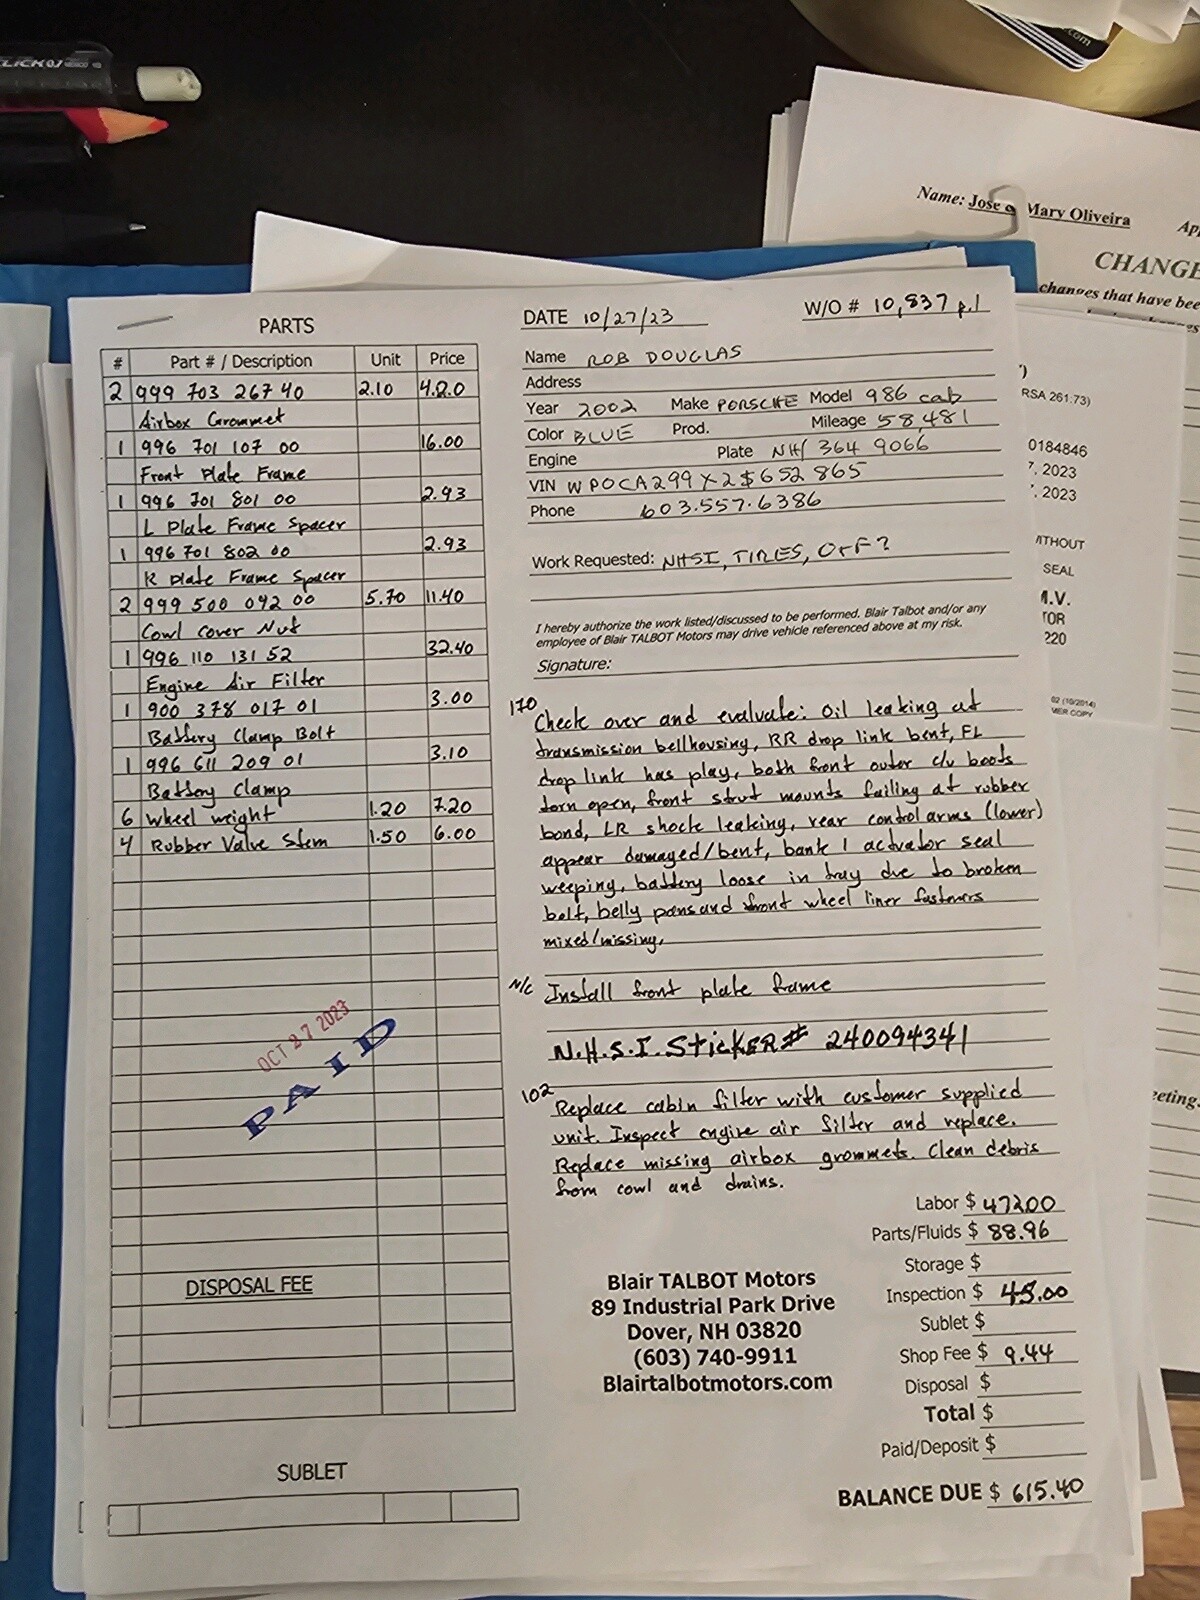 CLICK 0.7
.com
Name: Jose & Mary Oliveira
CHANGE
changes that have bee
RSA 261:73)
0184846
7, 2023
7, 2023
ITHOUT
SEAL
M.V.
TOR
220
02 (10/2014)
MER COPY
eeting
PARTS
# Part # / Description Unit Price
2 999 703 267 40 2.10 4.20
Airbox Grommet
1 996 701 107 00 16.00
Front Plate Frame
1 996 701 801 00 2.93
L Plate Frame Spacer
1 996 701 802 00 2.93
R Plate Frame Spacer
2 999 500 042 00 5.70 11.40
Cowl Cover Nut
1 996 110 131 52 32.40
Engine Air Filter
1 900 378 017 01 3.00
Battery Clamp Bolt
1 996 611 209 01 3.10
Battery Clamp
6 wheel weight 1.20 7.20
4 Rubber Valve Stem 1.50 6.00
OCT 27 2023
PAID
DISPOSAL FEE
SUBLET
DATE 10/27/23 W/O # 10,837 p.1
Name ROB DOUGLAS
Address
Year 2002 Make PORSCHE Model 986 cab
Color BLUE Prod. Mileage 58,481
Engine Plate NH/ 364 9066
VIN WP0CA299X2$652865
Phone 603.557.6386
Work Requested: NHSI, TIRES, O+F?
I hereby authorize the work listed/discussed to be performed. Blair Talbot and/or any
employee of Blair TALBOT Motors may drive vehicle referenced above at my risk.
Signature:
170 Check over and evaluate: Oil leaking at
transmission bellhousing, RR drop link bent, FL
drop link has play, both front outer c/v boots
torn open, front strut mounts failing at rubber
bond, LR shock leaking, rear control arms (lower)
appear damaged/bent, bank 1 actuator seal
weeping, battery loose in tray due to broken
bolt, belly pans and front wheel liner fasteners
mixed/missing.
N/C Install front plate frame
N.H.S.I. STICKER# 240094341
102 Replace cabin filter with customer supplied
unit. Inspect engine air filter and replace.
Replace missing airbox grommets. Clean debris
from cowl and drains.
Labor $ 472.00
Parts/Fluids $ 88.96
Storage $
Inspection $ 45.00
Sublet $
Shop Fee $ 9.44
Disposal $
Total $
Paid/Deposit $
BALANCE DUE $ 615.40
Blair TALBOT Motors
89 Industrial Park Drive
Dover, NH 03820
(603) 740-9911
Blairtalbotmotors.com